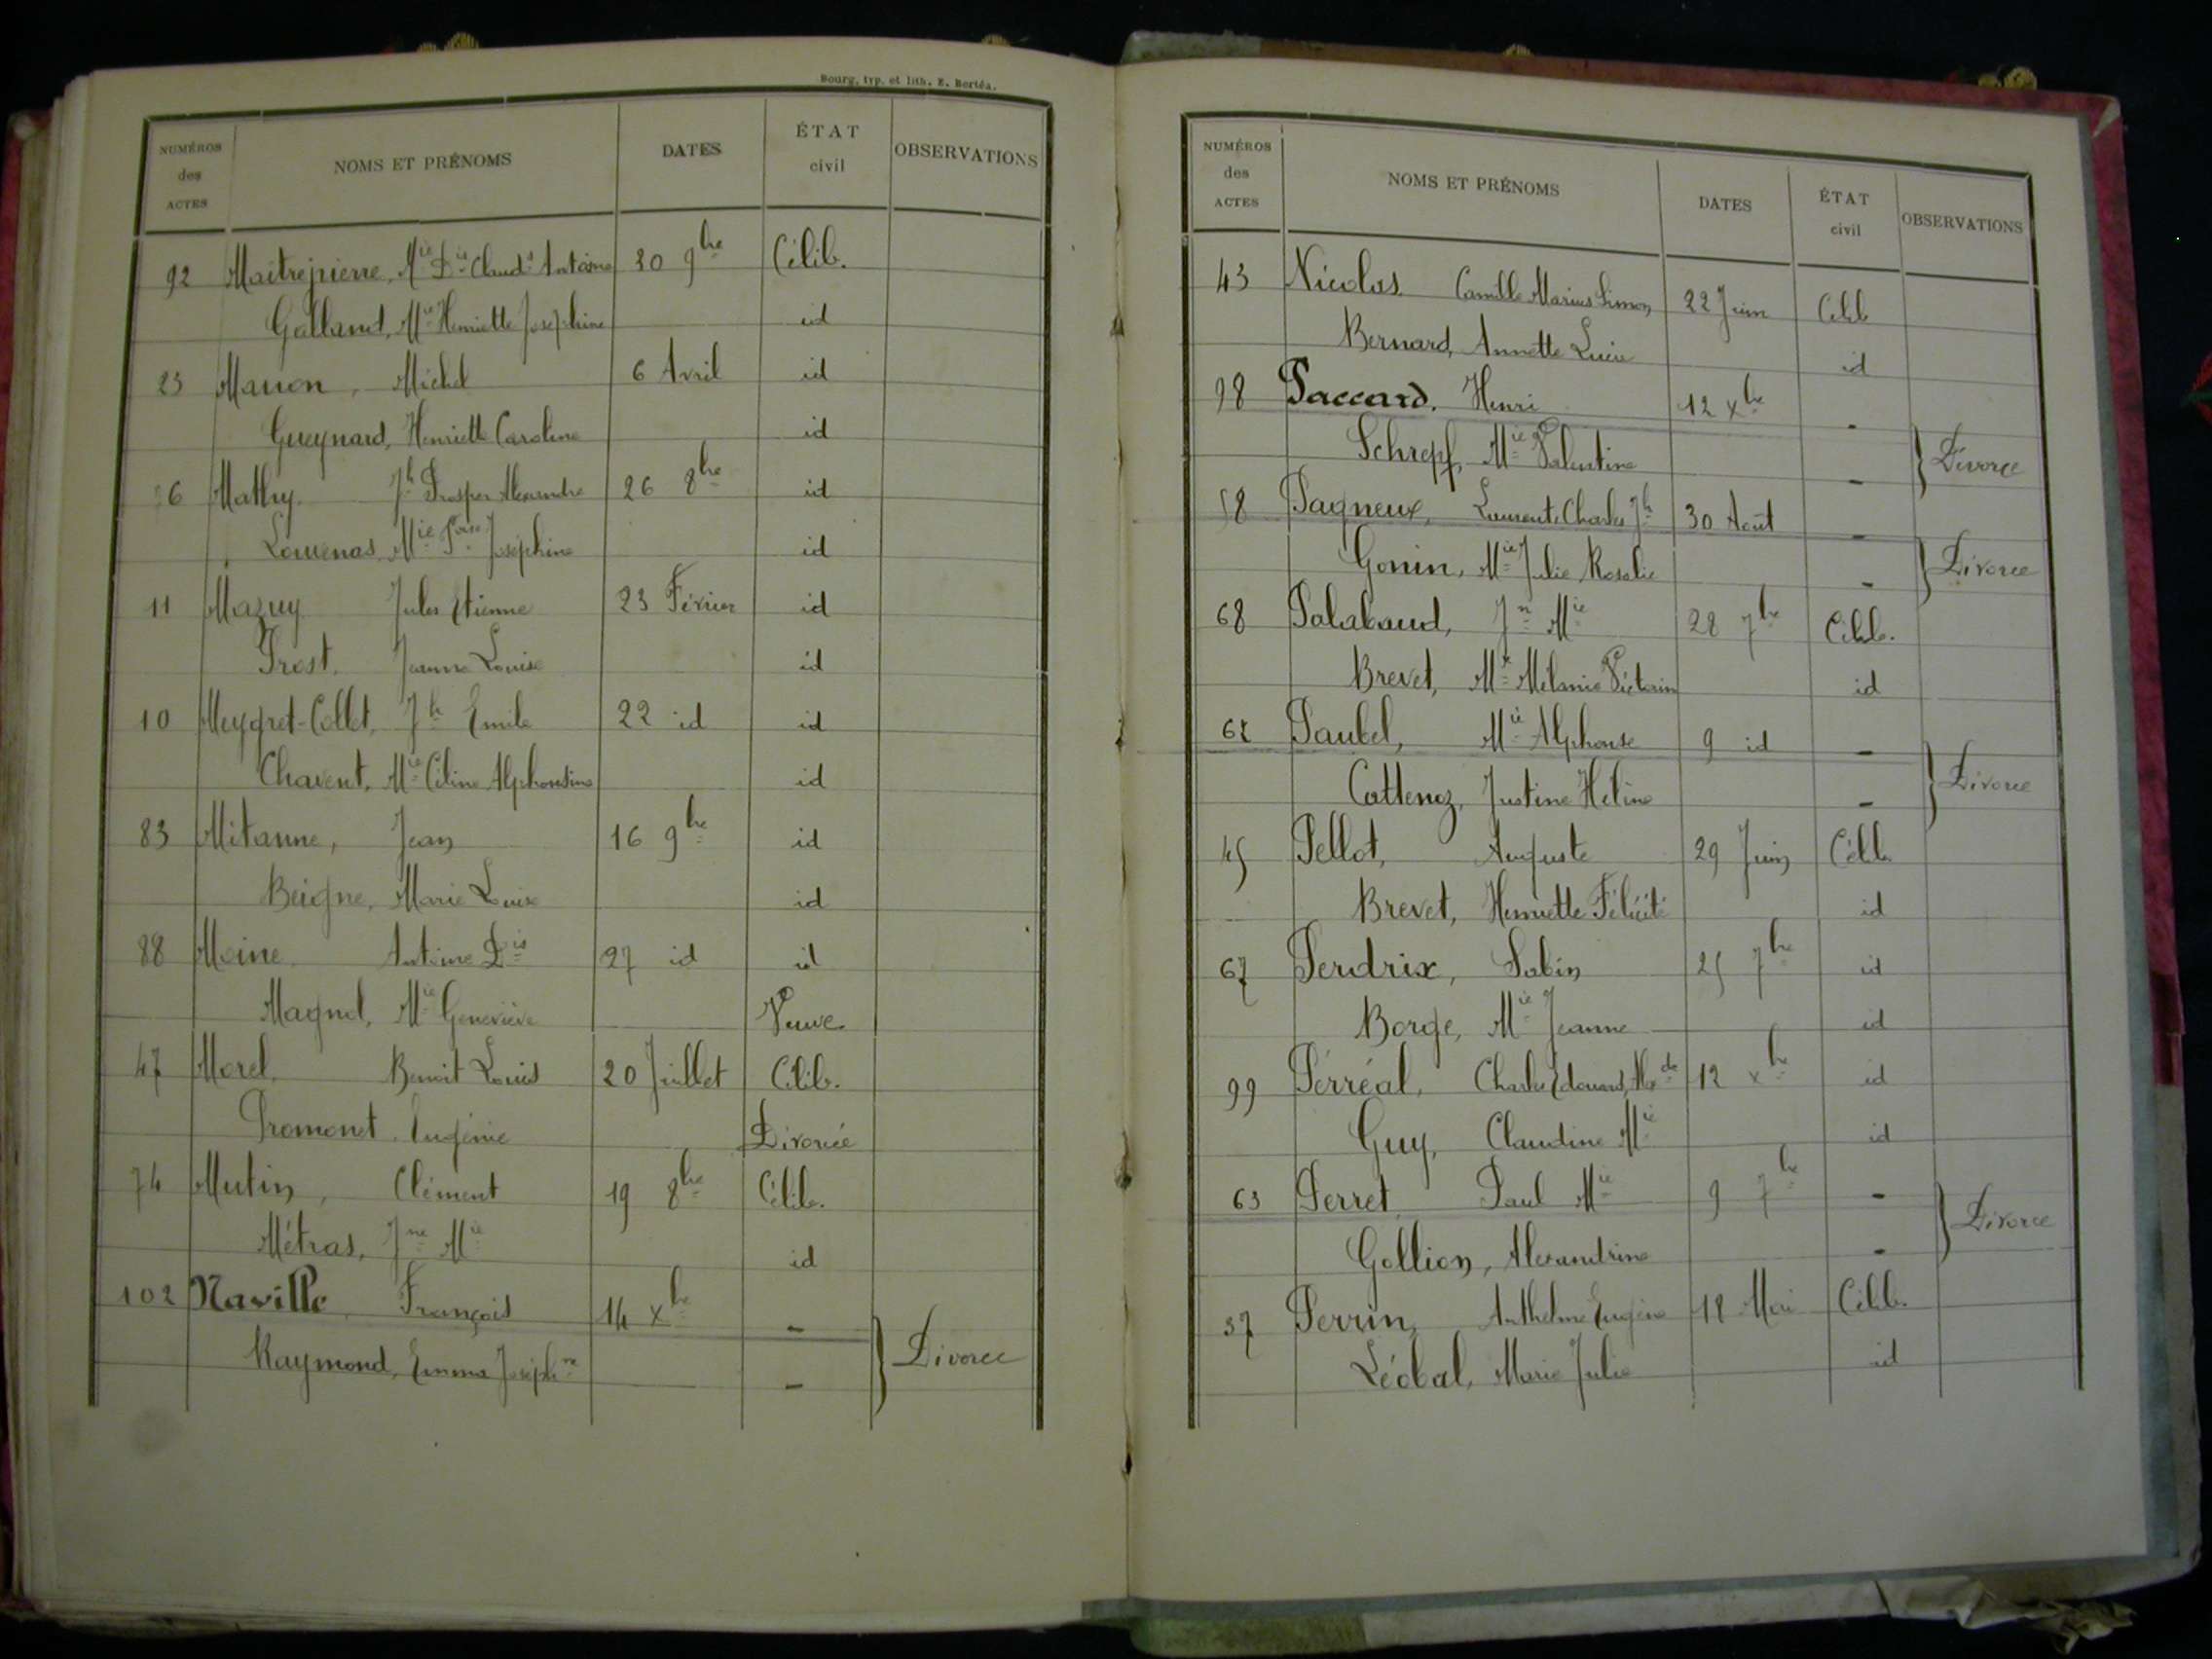 Bourg, typ. et lith. E. Bertéa.
NUMÉROS des ACTES NOMS ET PRÉNOMS DATES ÉTAT civil OBSERVATIONS
92 Maitrepierre, Mie Dis Claude Antoine 30 9bre Célib.
Galland, Mie Henriette Joséphine id
23 Manon, Michel 6 Avril id
Gueynard, Henriette Caroline id
Mathy. Jh Prosper Alexandre 26 8bre id
Mie Joséphine id
11 Mazuy Jules Etienne 23 Février id
Prost. Jeanne Louise id
10 Meygret-Collet, Jh Emile 22 id id
Chavent, Mie Céline Alphonsine id
83 Mitanne, Jean 16 9bre id
Beigne, Marie Louise id
88 Moine Antoine Dis 27 id id
Magnol, Mie Geneviève Veuve
47 Morel Benoit Louis 20 Juillet Célib.
Promonet Eugénie Divorcée
74 Mutin, Clément 19 8bre Célib.
Métras, Jne Mie id
102 Naville, François 14 xbre -
Raymond, Emma Joséphne - } Divorce
NUMÉROS des ACTES NOMS ET PRÉNOMS DATES ÉTAT civil OBSERVATIONS
43 Nicolas. Camille Marius Simon 22 Juin Célib
Bernard, Annette Lucie id
98 Paccard. Henri 12 xbre -
Schrepf, Mie Valentine - } Divorce
58 Pagneux, Laurent, Charles Jh 30 Août -
Gonin, Mie Julie Rosalie - } Divorce
68 Palabaud, Jn Mie 28 7bre Célib.
Brevet, Mie Mélanie Victorin id
62 Paubel, Mie Alphonse 9 id -
Cattenoz, Justine Hélène - } Divorce
45 Pellot, Auguste 29 Juin Célib.
Brevet, Henriette Félicité id
67 Perdrix, Sabin 25 7bre id
Borge, Mie Jeanne id
99 Perréal, Charles Edouard, Alexdre 12 xbre id
Guy, Claudine Mie id
63 Perret Paul Mie 9 7bre -
Gollion, Alexandrine - } Divorce
37 Perrin, Anthelme Eugène 18 Mai Célib.
Léobal, Marie Julie id